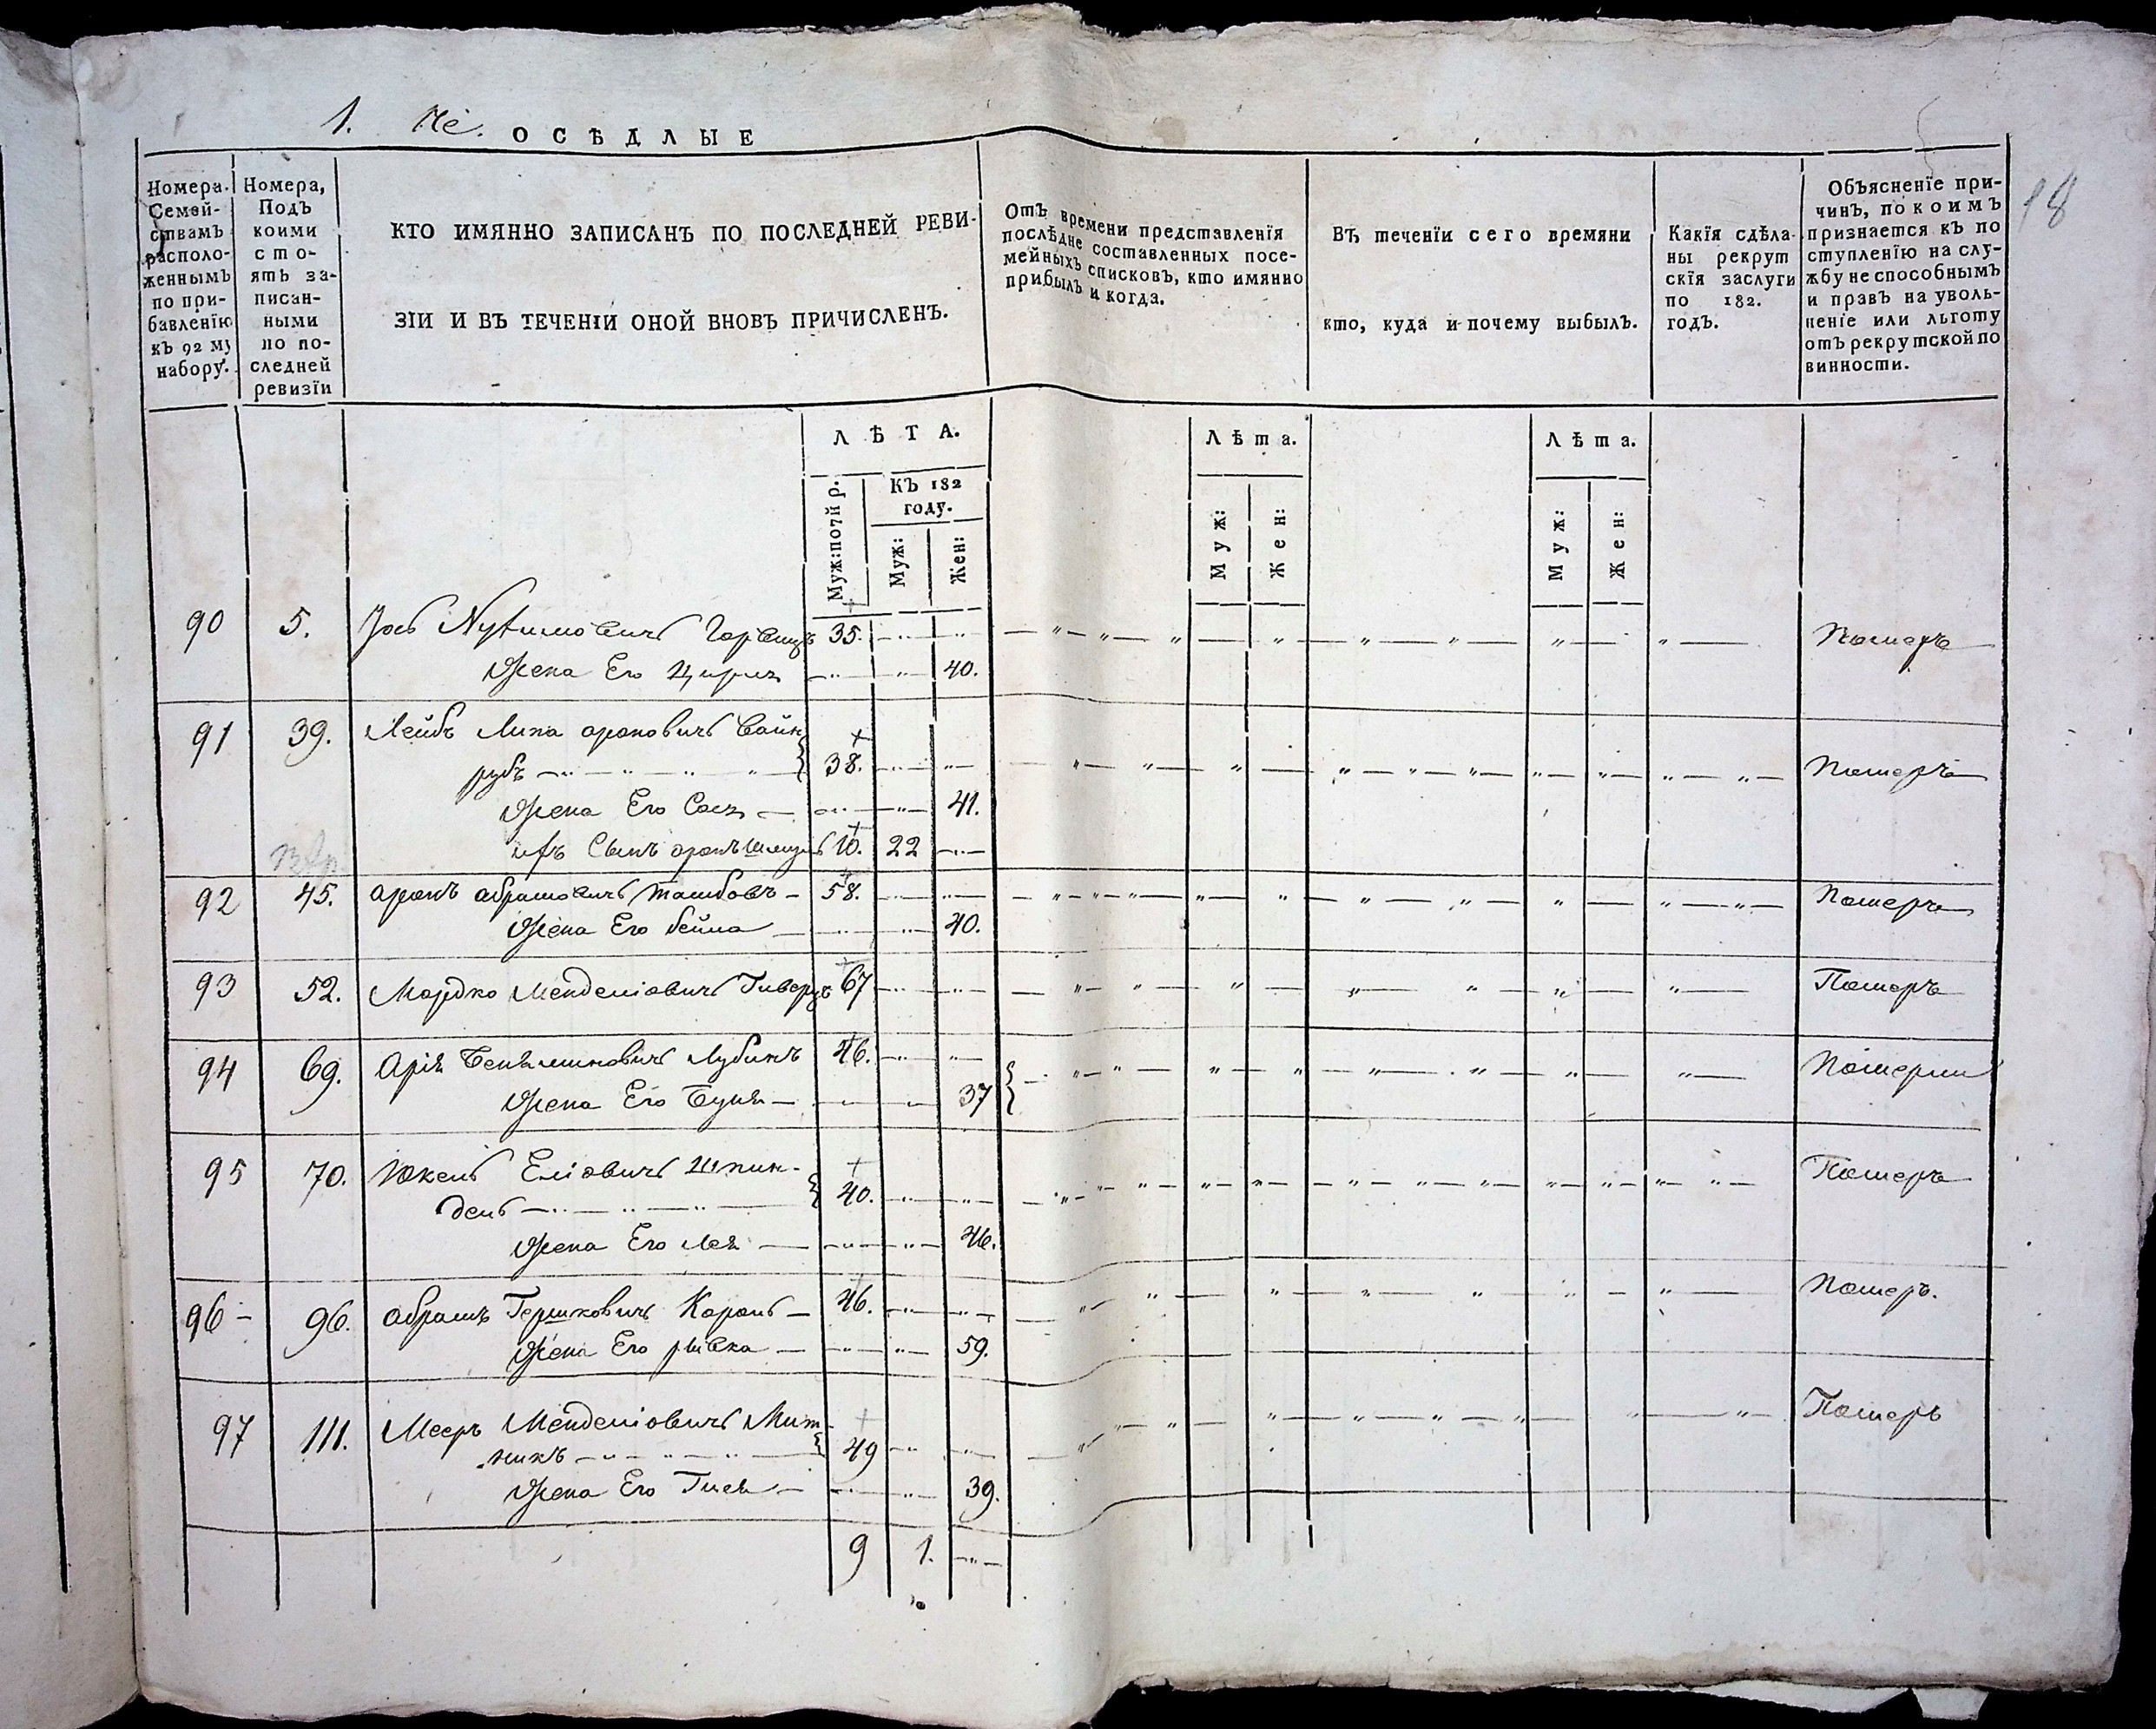 1. Не. ОСѢДЛЫЕ
18
Номера Семей-
ствамъ
располо-
женнымъ
по при-
бавленію
къ 92 му
набору.
Номера,
Подъ
коими
сто-
ять за-
писан-
ными
по по-
следней
ревизїи
КТО ИМЯННО ЗАПИСАНЪ ПО ПОСЛЕДНЕЙ РЕВИ-
ЗІИ И ВЪ ТЕЧЕНІИ ОНОЙ ВНОВЪ ПРИЧИСЛЕНЪ.
Отъ времени представленїя
послѣдне составленныхъ посе-
мейныхъ списковъ, кто имянно
прибылъ и когда.
Въ теченїи сего времяни
кто, куда и почему выбылъ.
Какїя сдѣла-
ны рекрут
скїя заслуги
по 182.
годъ.
Объясненїе при-
чинъ, по коимъ
признается къ по
ступленїю на слу-
жбу не способнымъ
и правъ на уволь-
ненїе или льготу
отъ рекрутской по
винности.
ЛѢТА.
Муж: по 7й р.
КЪ 182
году.
Муж:
Жен:
Лѣта.
Муж:
Жен:
Лѣта.
Муж:
Жен:
90 5. Горвицъ 35. Померъ
Жена Его 40.
91 39. Лейбъ Липа ароновичъ Вайн
рубъ 38. Померъ
Жена Его Сося 41.
ихъ Сынъ аронъ Шмуль 10. 22
92 45. аронъ абрамовичъ 58. Померъ
Жена Его бейла 40.
93 52. Мордко Менделіовичъ 67 Померъ
94 69. Арія Беняминовичъ Лубинъ 46. Померли
Жена Его Буня 37
95 70. Юкель Еліовичъ Шпин-
дель 40. Померъ
Жена Его Лея 46.
96 96. абрамъ Гершковичъ Король 46. Померъ.
Жена Его рывка 59.
97 111. Мееръ Менделіовичъ Мит-
никъ 49 Померъ
Жена Его 39.
9 1.